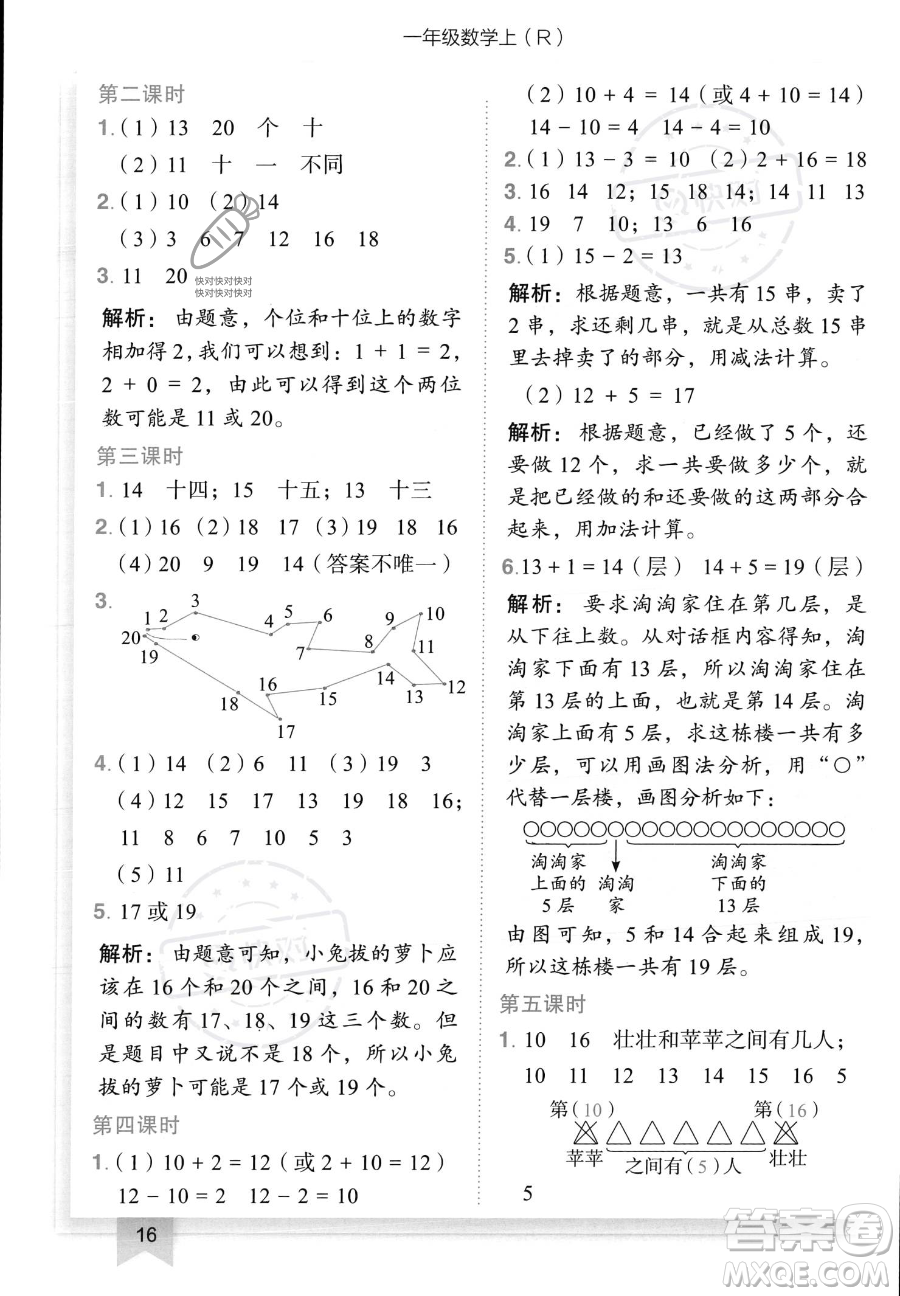 一年级数学上(R)
第二课时
1.(1)13 20 个 十
(2)11 十 一 不同
2.(1)10 (2)14
(3)3 6 7 12 16 18
3. 11 20
快对快对快对
快对快对快对
解析：由题意，个位和十位上的数字
相加得2，我们可以想到：1+1=2，
2+0=2，由此可以得到这个两位
数可能是11或20。
第三课时
1. 14 十四；15 十五；13 十三
2.(1)16 (2)18 17 (3)19 18 16
(4)20 9 19 14(答案不唯一)
3.
1 2 3 4 5 6 7 8 9 10
11 12 13 14 15 16 17 18 19 20
4.(1)14 (2)6 11 (3)19 3
(4)12 15 17 20 18 16；
11 8 6 7 5 3
(5)11
5. 17或19
解析：由题意可知，小兔拔的萝卜应
该在16个和20个之间，16和20之
间的数有17、18、19这三个数。但
是题目中又说不是18个，所以小兔
拔的萝卜可能是17个或19个。
第四课时
1.(1)10+2=12(或2+10=12)
12-10=2 12-2=10
(2)10+4=14(或4+10=14)
14-10=4 14-4=10
2.(1)13-3=10 (2)2+16=18
3. 16 14 12；15 18 14；11 13
4. 19 7 10；13 6 16
5.(1)15-2=13
解析：根据题意，一共有15串，卖了
2串，求还剩几串，就是从总数15串
里去掉卖了的部分，用减法计算。
(2)12+5=17
解析：根据题意，已经做了5个，还
要做12个，求一共要做多少个，就
是把已经做的和还要做的这两部分合
起来，用加法计算。
6.13+1=14(层) 14+5=19(层)
解析：要求淘淘家住在第几层，是
从下往上数。从对话框内容得知，淘
淘家下面有13层，所以淘淘家住在
第13层的上面，也就是第14层。淘
淘家上面有5层，求这栋楼一共有多
少层，可以用画图法分析，用“○”
代替一层楼，画图分析如下：
○○○○○○○○○○○○○○○○○○○
淘淘家 淘淘家
上面的 淘淘 下面的
5层 家 13层
由图可知，5和14合起来组成19，
所以这栋楼一共有19层。
第五课时
1. 10 16 壮壮和苹苹之间有几人；
10 11 12 13 14 15 16 5
第(10) 第(16)
苹苹 之间有(5)人 壮壮
5
16
答案圈
MXQE.COM